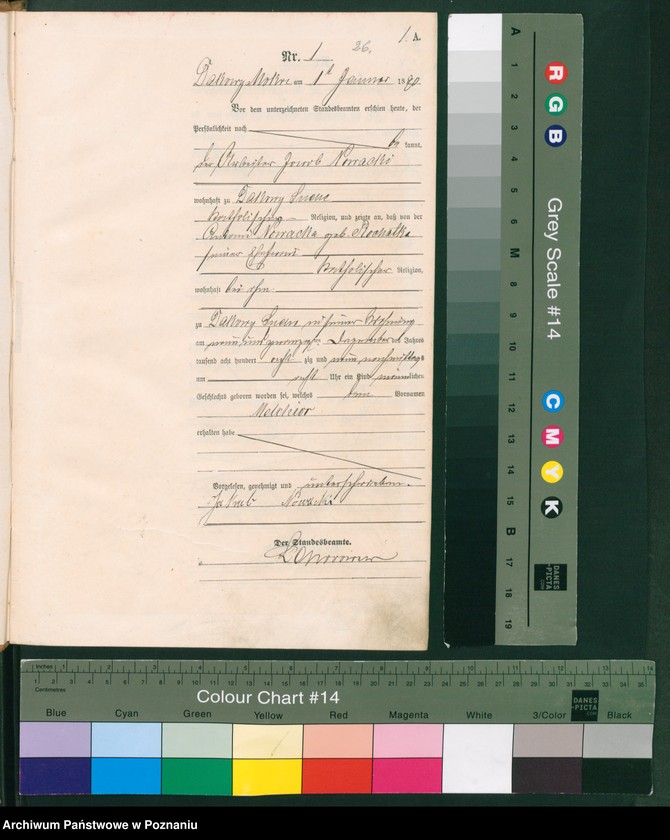 1. A.
26.
Nr. 1
Dakowy Mokre am 1t Januar 1890
Vor dem unterzeichneten Standesbeamten erschien heute, der
Persönlichkeit nach
be kannt,
der Arbeiter Jacob Nowacki
wohnhaft zu Dakowy Suche
katholischer Religion, und zeigte an, daß von der
Nowacka geb
seiner Ehefrau
katholischer Religion,
wohnhaft bei ihm
zu Dakowy Suche in seiner Wohnung
am neun und zwanzigsten Dezember des Jahres
tausend acht hundert acht zig und neun nachmittags
um acht Uhr ein Kind männlichen
Geschlechts geboren worden sei, welches den Vornamen
Melchior
erhalten habe
Vorgelesen, genehmigt und unterschrieben.
Jakub Nowacki
Der Standesbeamte.
A
1
2
3
4
5
6
M
8
9
10
11
12
13
14
15
B
17
18
19
R
G
B
Grey Scale #14
C
M
Y
K
DANES
-PICTA
.COM
Inches
Centimetres
Colour Chart #14
DANES
-PICTA
.COM
Blue Cyan Green Yellow Red Magenta White 3/Color Black
Archiwum Państwowe w Poznaniu